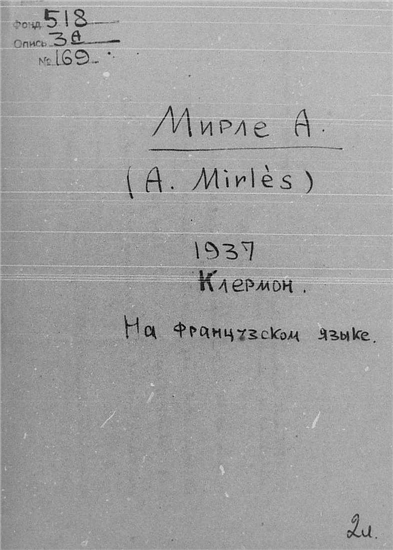 Фонд 518
Опись 3А
№ 169
Мирле А.
(A. Mirlès)
1937
Клермон.
На французском языке.
2л.